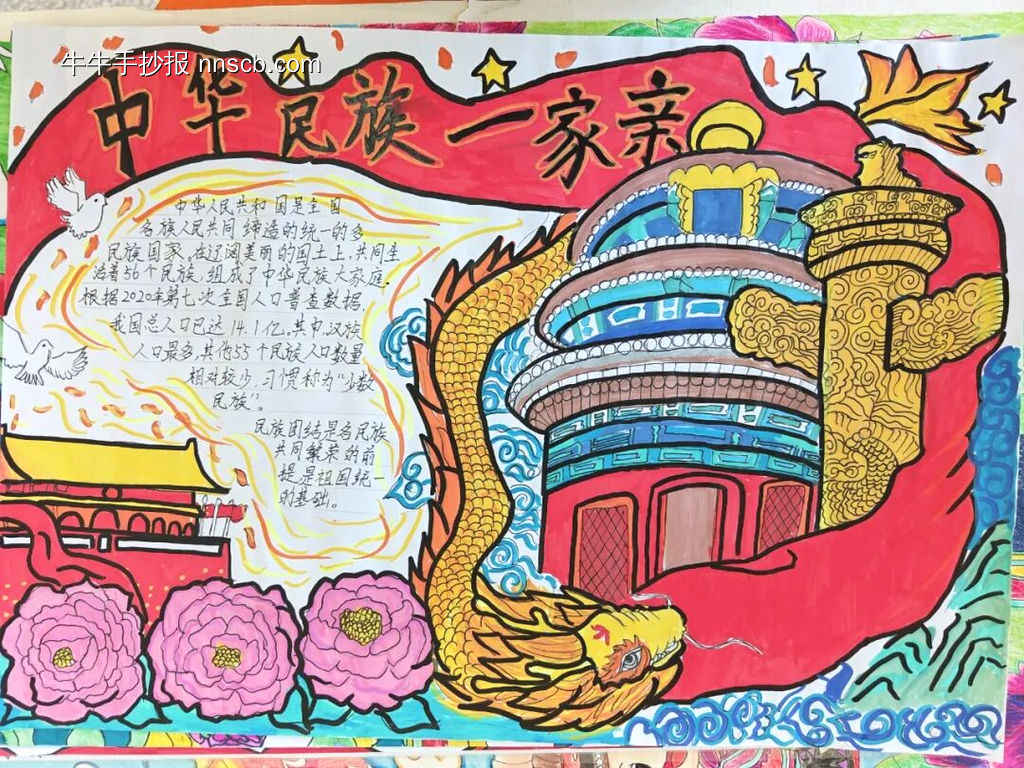 牛牛手抄报 nnscb.com
中华民族一家亲
中华人民共和国是全国
各族人民共同缔造的统一的多
民族国家。在辽阔美丽的国土上,共同生
活着56个民族,组成了中华民族大家庭。
根据2020年第七次全国人口普查数据,
我国总人口已达14.1亿。其中,汉族
人口最多,其他55个民族人口数量
相对较少,习惯称为“少数
民族”。
民族团结是各民族
共同繁荣的前
提,是祖国统一
的基础。